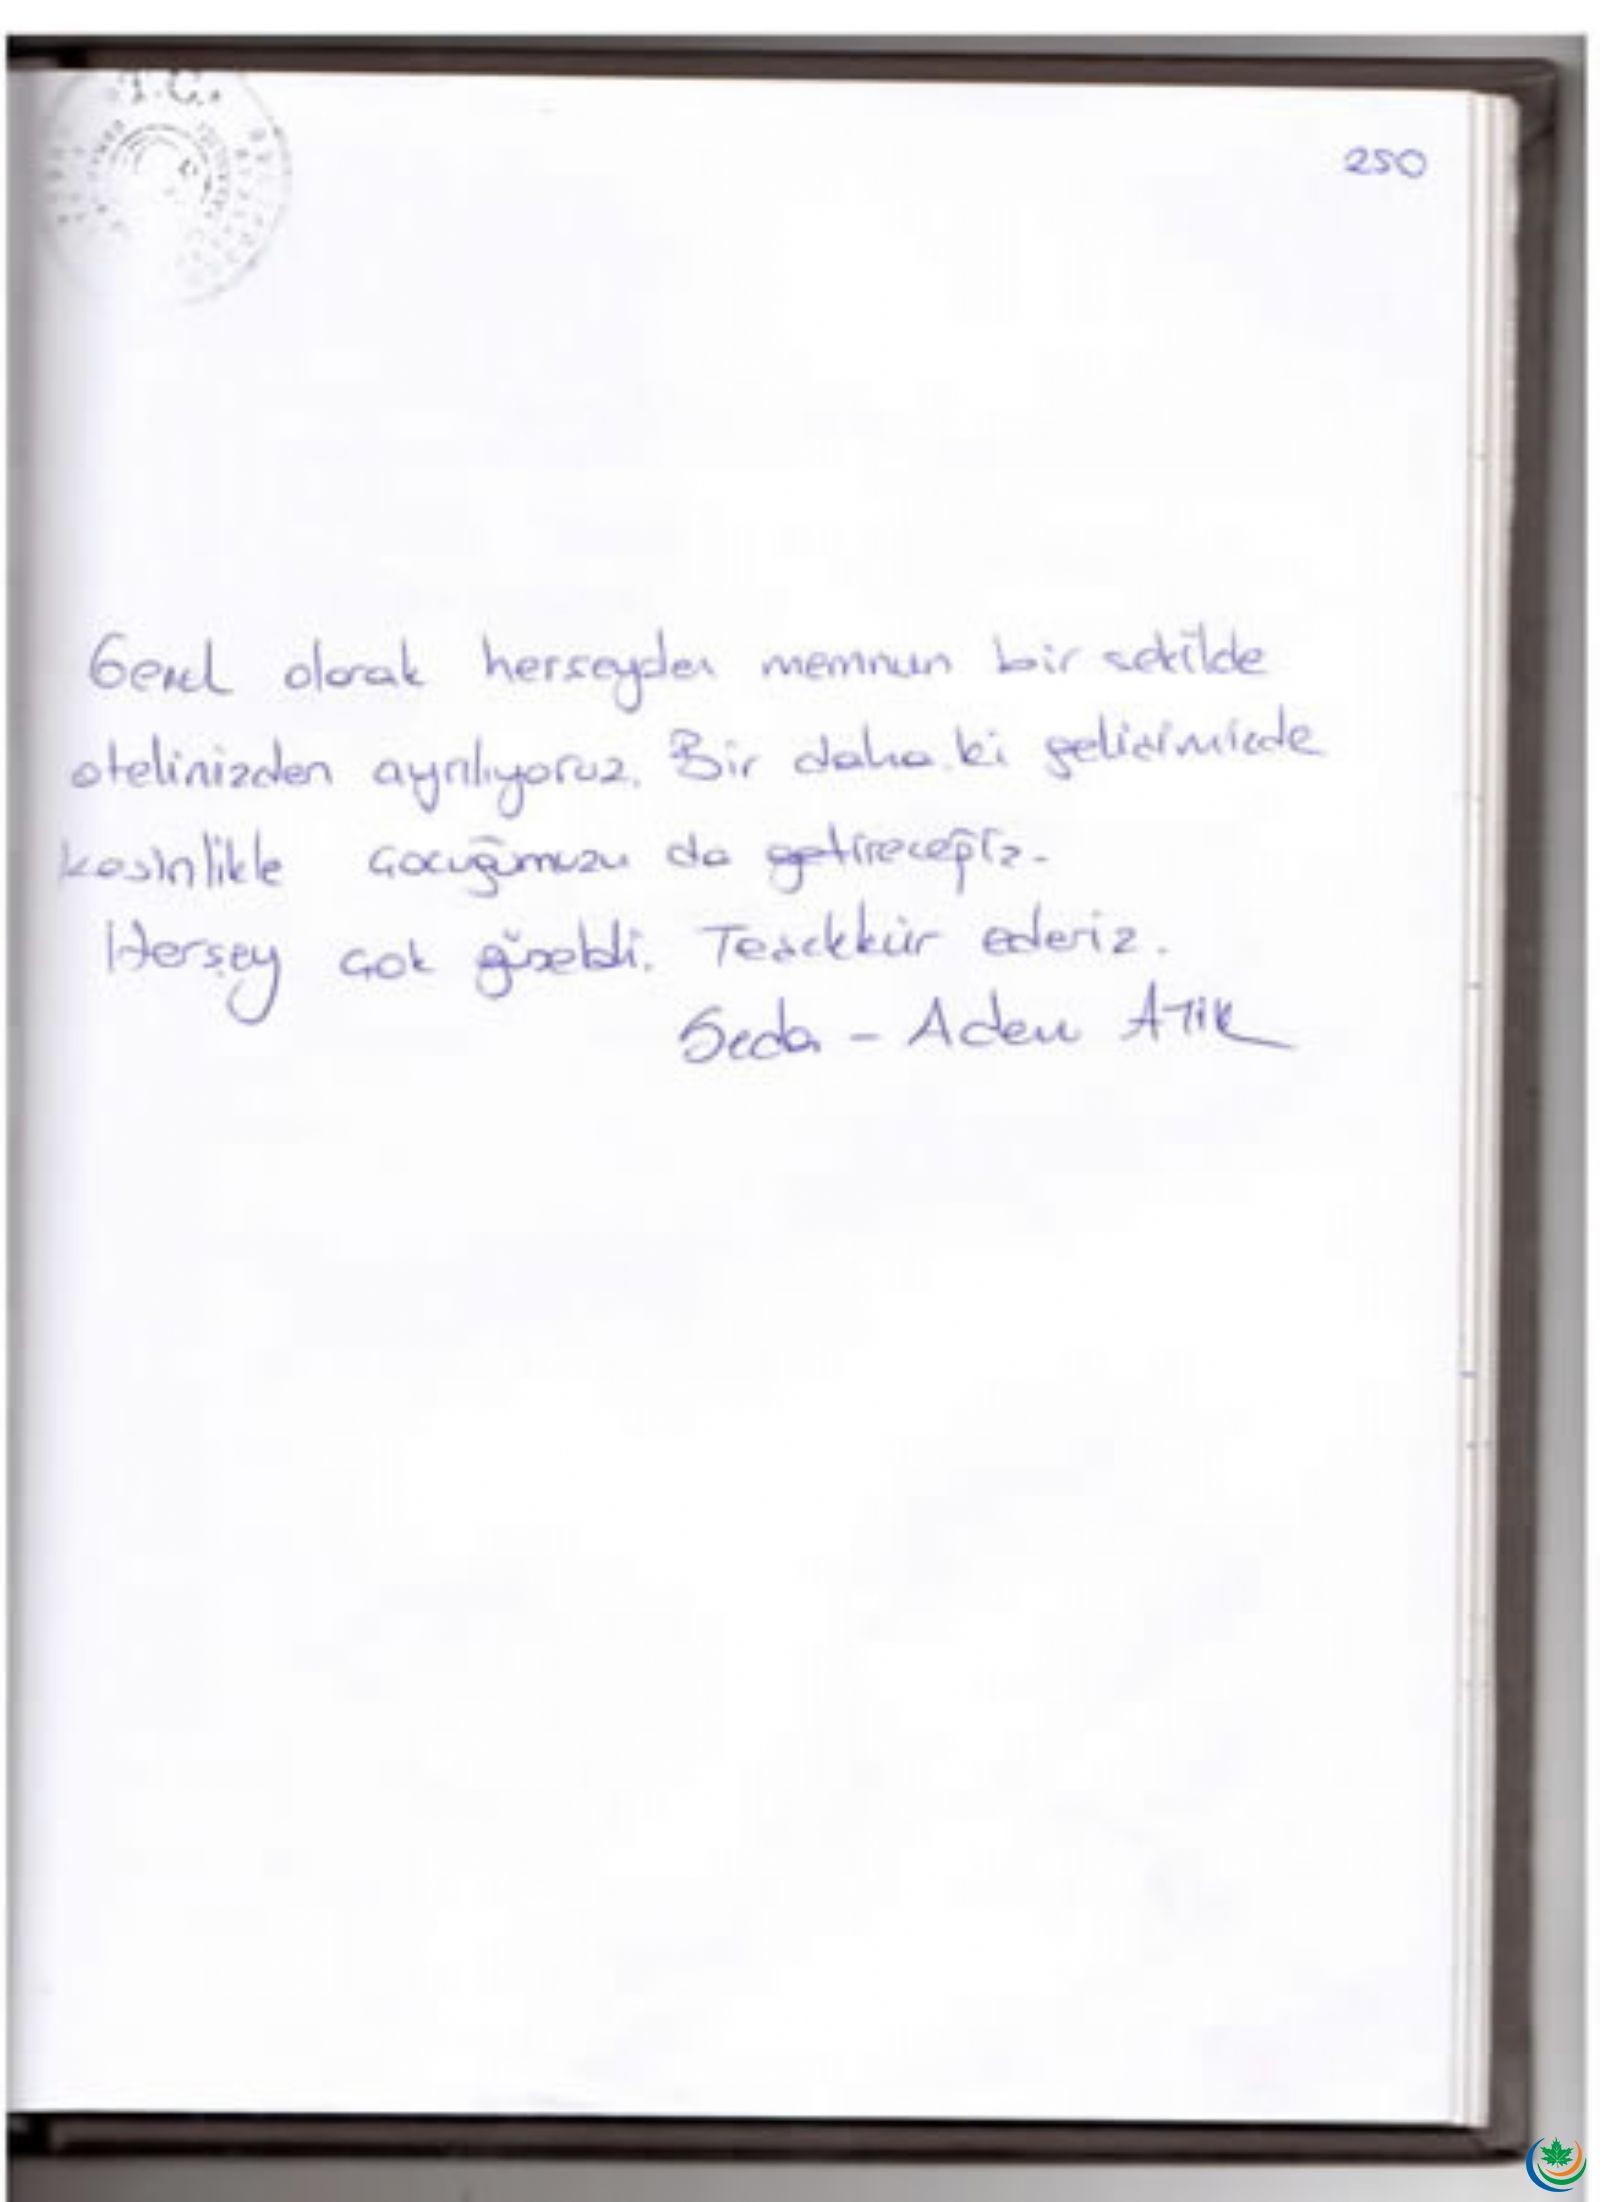 T.C.
250
Genel olarak herseyden memnun bir sekilde
otelinizden ayrılıyoruz. Bir daha ki gelisimizde
kesinlikle çocuğumuzu da getireceğiz.
Herşey çok güzeldi. Tesekkür ederiz.
Seda - Adem ATİK